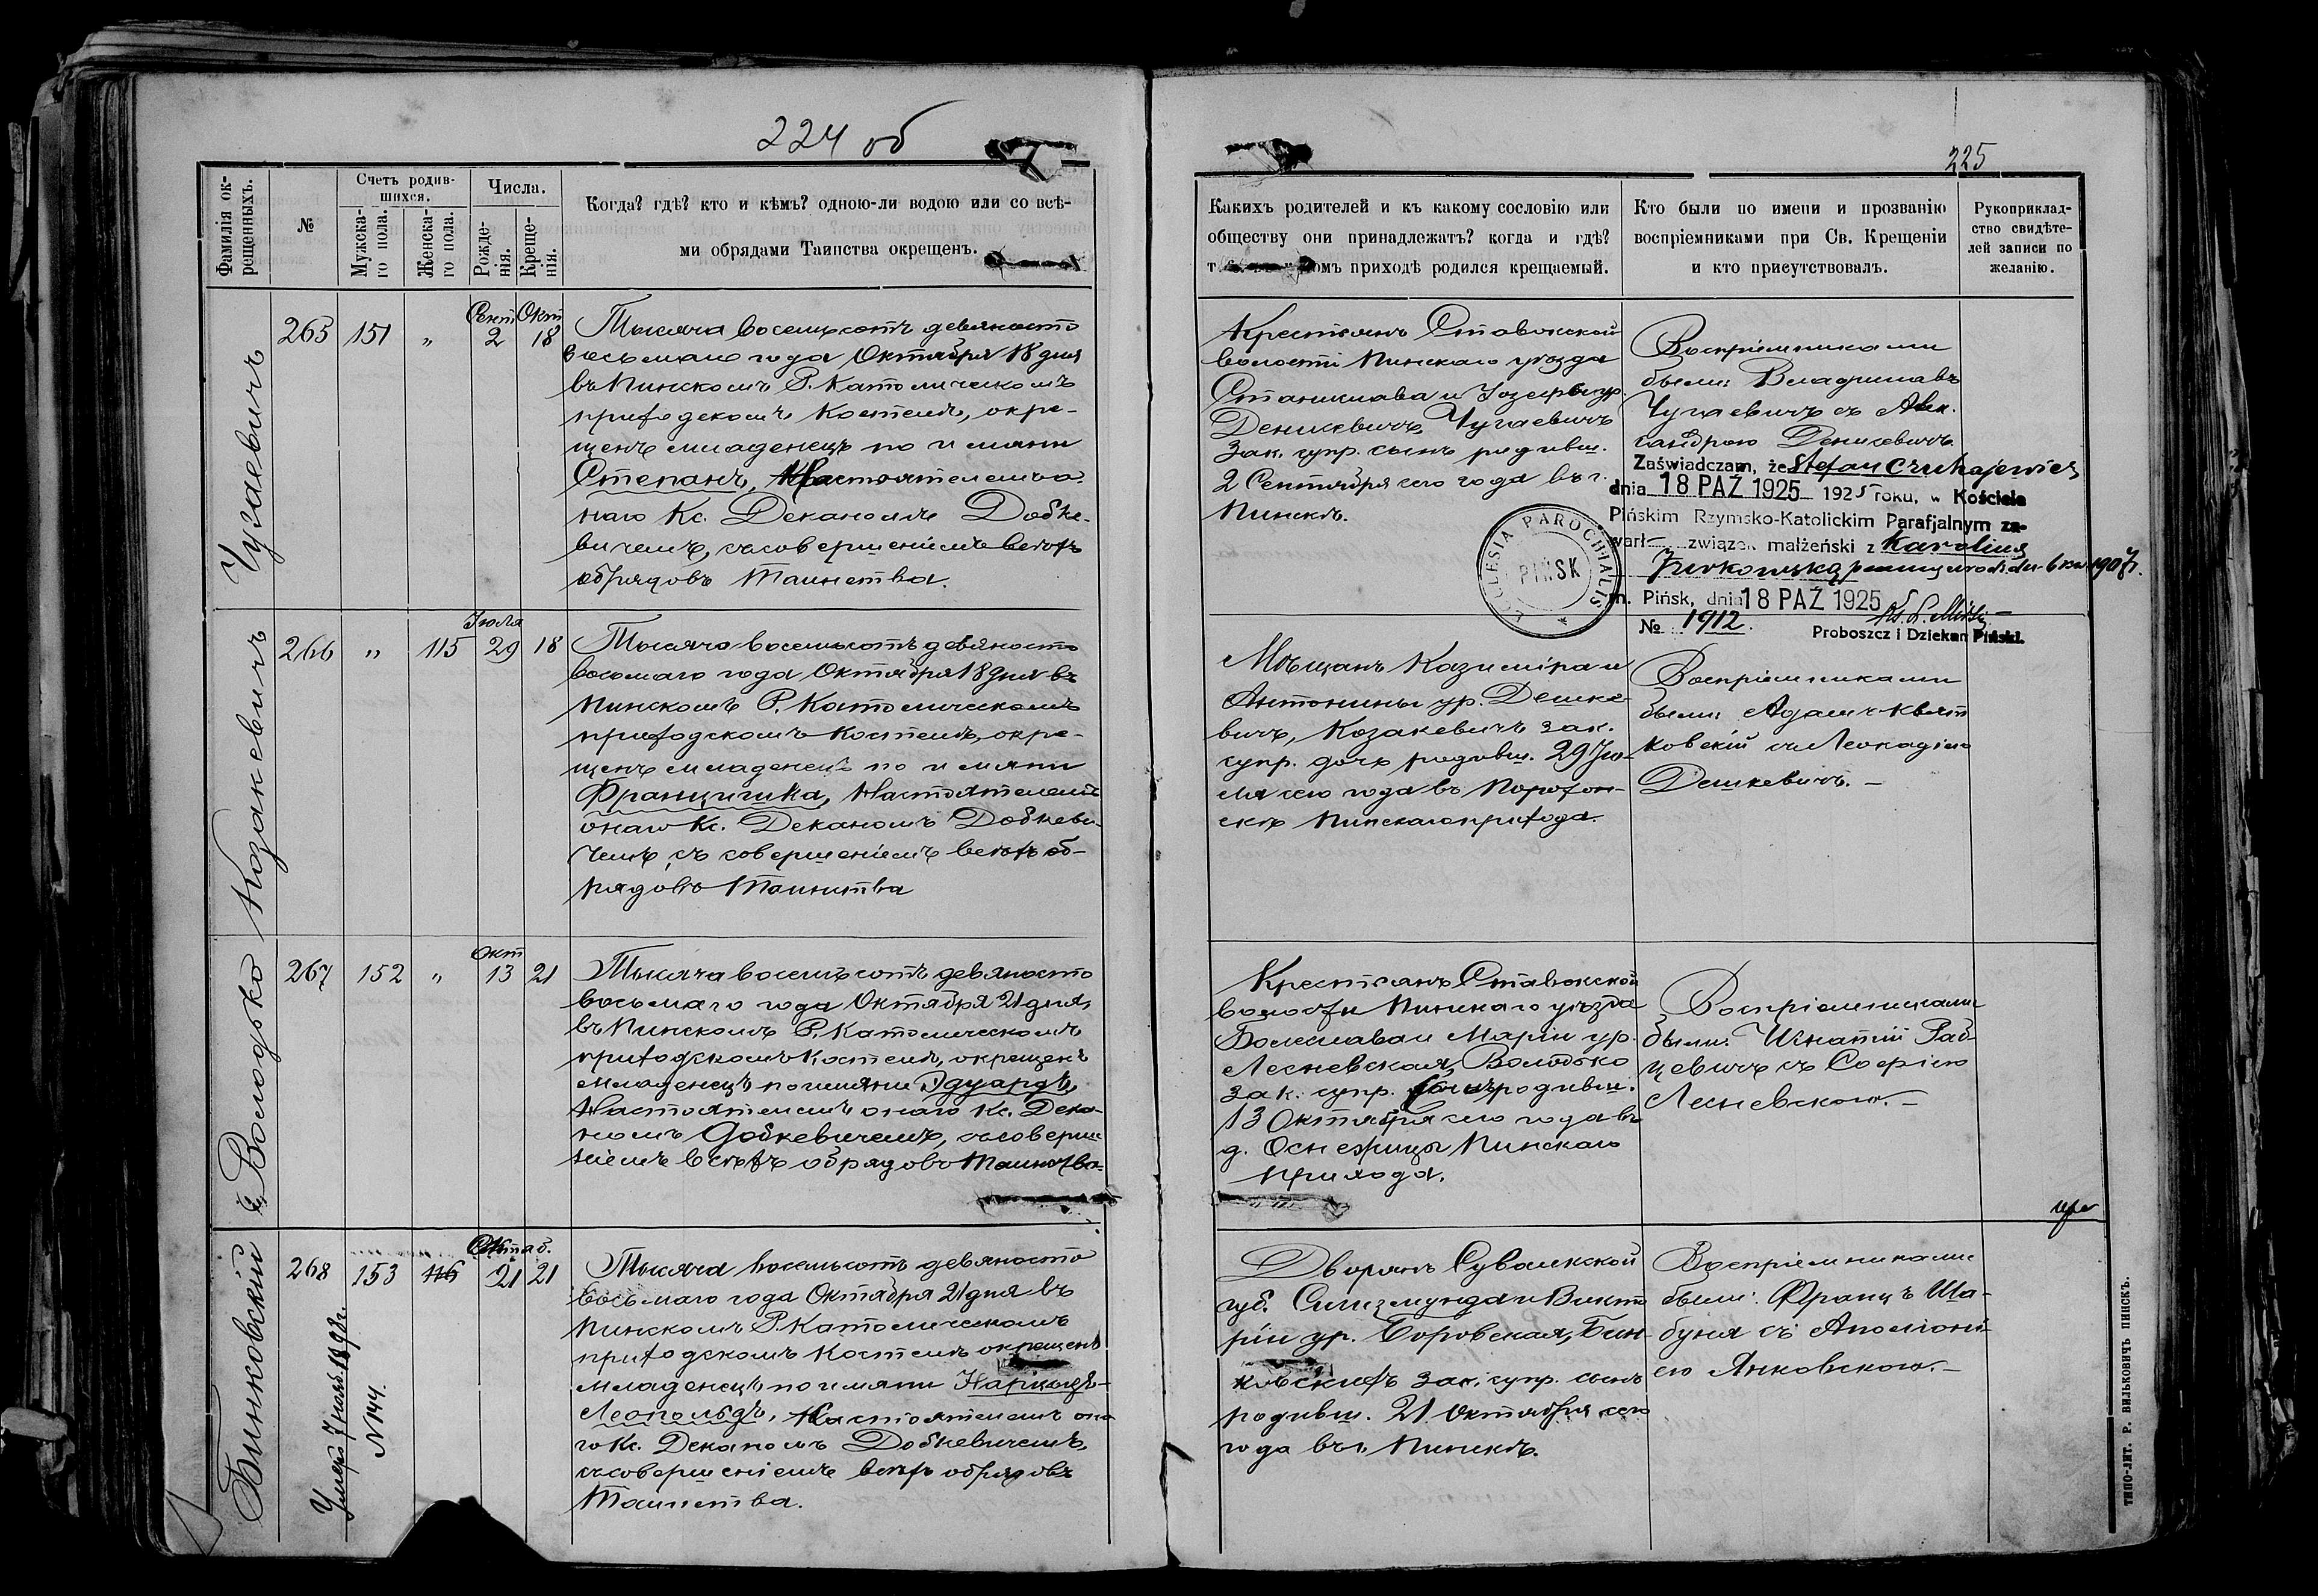 224 об
225
Фамилія ок-
рещенныхъ.
№
Счетъ родив-
шихся.
Мужска-
го пола.
Женска-
го пола.
Числа.
Рожде-
нія.
Креще-
нія.
Когда? гдѣ? кто и кѣмъ? одною-ли водою или со всѣ-
ми обрядами Таинства окрещенъ.
Какихъ родителей и къ какому сословію или
обществу они принадлежатъ? когда и гдѣ?
омъ приходѣ родился крещаемый.
Кто были по имени и прозванію
воспріемниками при Св. Крещеніи
и кто присутствовалъ.
Рукоприклад-
ство свидѣте-
лей записи по
желанію.
Чугаевичъ
265 151 „ Сент 2 Окт 18
Тысяча восемьсотъ девяносто
восьмаго года Октября 18 дня
въ Пинскомъ Р. Католическомъ
приходскомъ Костелѣ, окре-
щенъ младенецъ по имени
Степанъ, Настоятелемъ о-
наго Кс. Деканомъ Добке-
вичемъ, съ совершеніемъ всѣхъ
обрядовъ Таинства.
Крестьянъ Ставокской
волости Пинскаго уѣзда
Станислава и Іозефы ур.
Денисевичъ, Чугаевичъ
зак. супр. сынъ родивш.
2 Сентября сего года въ г.
Пинскѣ.
Воспріемниками
были: Владиславъ
Чугаевичъ съ Алек-
сандрою Денисевичъ.
Zaświadczam, że Stefan Czuhajewicz
dnia 18 PAŹ 1925 1925 roku, w Kościele
Pińskim Rzymsko-Katolickim Parafjalnym za-
warł związek małżeński z Karoliną
m. Pińsk, dnia 18 PAŹ 1925
№ 1912.
Proboszcz i Dziekan Piński.
ECCLESIA PAROCHIALIS
PIŃSK
Козакевичъ
266 „ 115 Іюля 29 18
Тысяча восемьсотъ девяносто
восьмаго года Октября 18 дня въ
Пинскомъ Р. Католическомъ
приходскомъ Костелѣ, окре-
щенъ младенецъ по имени
Францишка, Настоятелемъ
онаго Кс. Деканомъ Добкеви-
чемъ, съ совершеніемъ всѣхъ об-
рядовъ Таинства
Мѣщанъ Казиміра и
Антонины ур. Дешке-
вичъ, Козакевичъ зак.
супр. дочь родивш. 29 Ію-
ля сего года въ Порохон-
скѣ Пинскаго прихода.
Воспріемниками
были: Адамъ Квят
ковскій съ Леокадіею
Дешкевичъ. —
Володько
267 152 „ Окт 13 21
Тысяча восемьсотъ девяносто
восьмаго года Октября 21 дня,
въ Пинскомъ Р. Католическомъ
приходскомъ Костелѣ, окрещенъ
младенецъ по имени Эдуардъ,
Настоятелемъ онаго Кс. Дека-
номъ Добкевичемъ, съ соверше-
ніемъ всѣхъ обрядовъ Таинства.
Крестьянъ Ставокской
волости Пинскаго уѣзда
Болеслава и Маріи ур.
Лесневская, Володько
зак. супр. сынъ родивш.
13 Октября сего года въ
д. Оснежицы Пинскаго
прихода.
Воспріемниками
были: Игнатій Раб-
цевичъ съ Софіею
Лесневскою. —
Бинковскій
268 153 116 Октяб. 21 21
Умеръ 7 Нояб. 1898 г.
N 144.
Тысяча восемьсотъ девяносто
восьмаго года Октября 21 дня въ
Пинскомъ Р. Католическомъ
приходскомъ Костелѣ окрещенъ
младенецъ по имени Нарцызъ-
Леопольдъ, Настоятелемъ она-
го Кс. Деканомъ Добкевичемъ,
съ совершеніемъ всѣхъ обрядовъ
Таинства.
Дворянъ Сувалкской
губ. Сигизмунда и Викто
ріи ур. Боровская, Бин-
ковскихъ зак. супр. сынъ
родивш. 21 Октября сего
года въ г. Пинскѣ.
Воспріемниками
были: Францъ Ша-
буня съ Аполоні-
ею Янковскою. —
ТИПО-ЛИТ. Р. ВИЛЬКОВИЧЪ ПИНСКЪ.